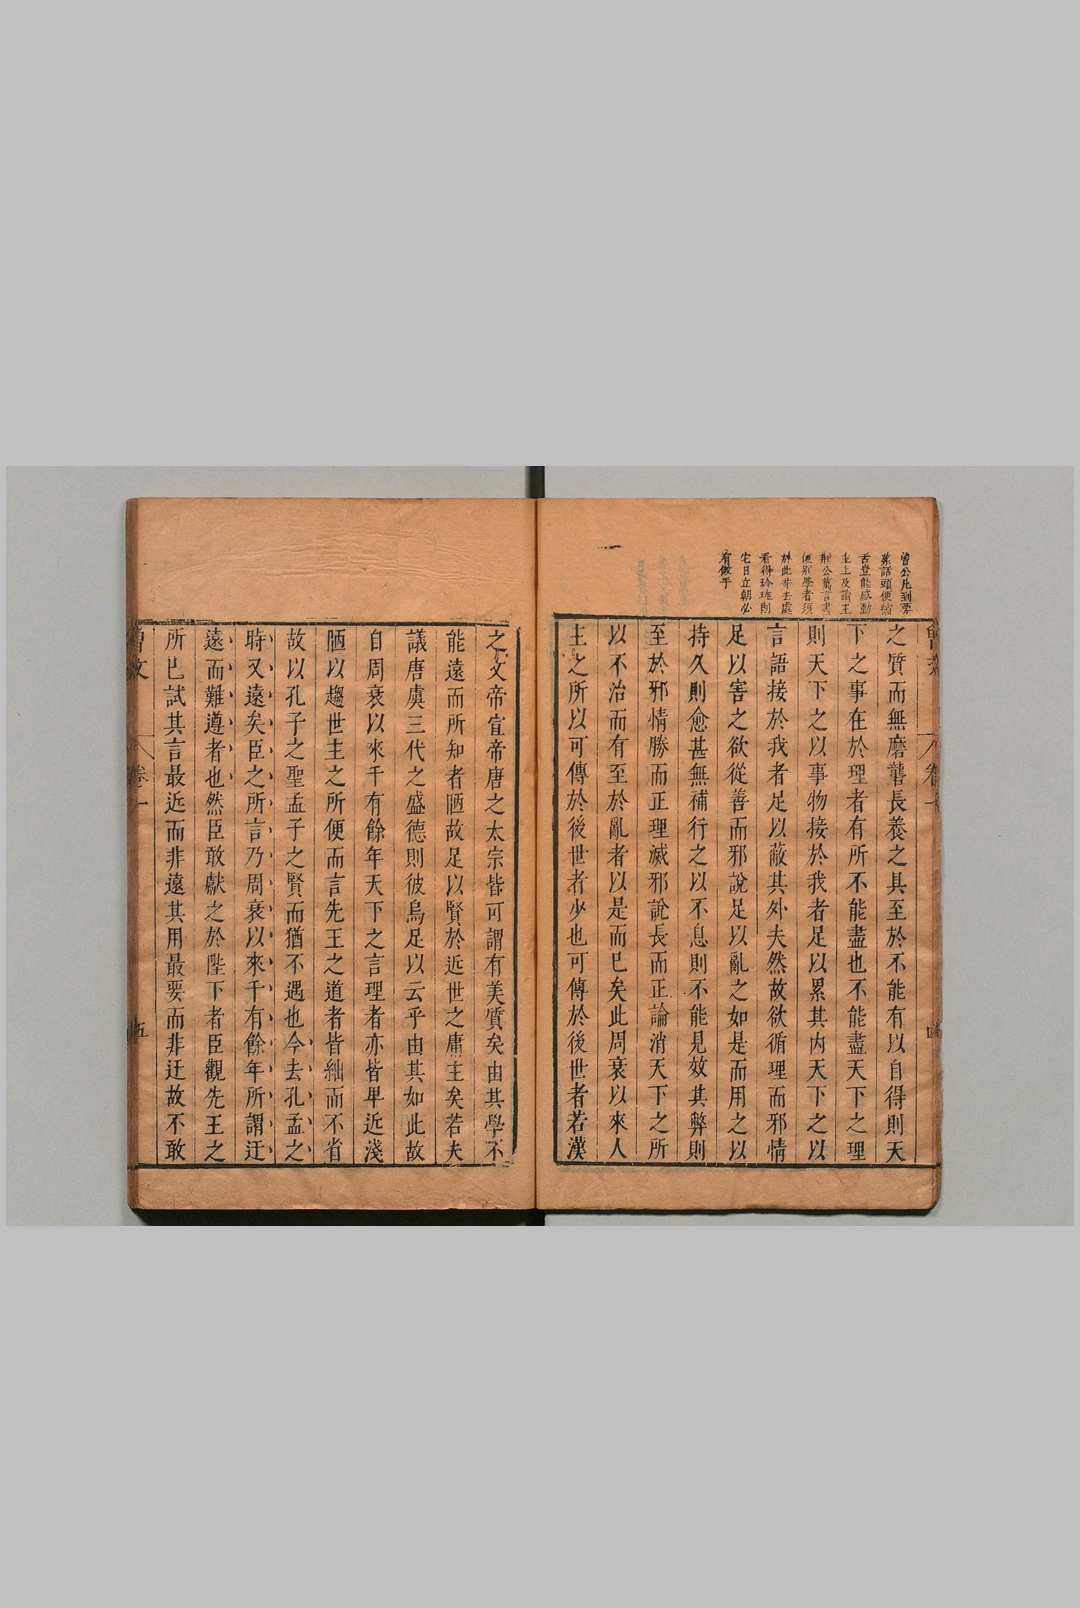 曾公凡到要
緊話頭便
舌豈能感動
主上及讀王
荊公萬言書
便別學者須
於此等去處
看得玲瓏則
它日立朝必
有
之質而無磨礱長養之具至於不能有以自得則天
下之事在於理者有所不能盡也不能盡天下之理
則天下之以事物接於我者足以累其內天下之以
言語接於我者足以蔽其外夫然故欲循理而邪情
足以害之欲從善而邪說足以亂之如是而用之以
持久則愈甚無補行之以不息則不能見效其弊則
至於邪情勝而正理滅邪說長而正論消天下之所
以不治而有至於亂者以是而已矣此周衰以來人
主之所以可傳於後世者少也可傳於後世者若漢
卷一
四
之文帝宣帝唐之太宗皆可謂有美質矣由其學不
能遠而所知者陋故足以賢於近世之庸主矣若夫
議唐虞三代之盛德則彼烏足以云乎由其如此故
自周衰以來千有餘年天下之言理者亦皆卑近淺
陋以趨世主之所便而言先王之道者皆絀而不省
故以孔子之聖孟子之賢而猶不遇也今去孔孟之
時又遠矣臣之所言乃周衰以來千有餘年所謂迂
遠而難遵者也然臣敢獻之於陛下者臣觀先王之
所已試其言最近而非遠其用最要而非迂故不敢
曾文
卷一
五